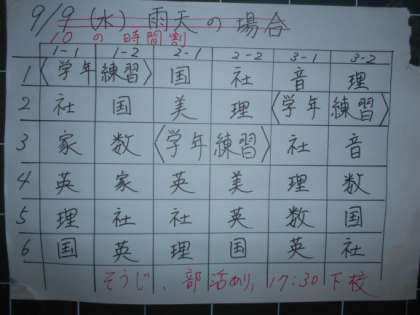 9/9(水)雨天の場合
10の時間割
1-1 1-2 2-1 2-2 3-1 3-2
1 〈学年練習〉 国 社 音 理
2 社 国 美 理 〈学年練習〉
3 家 数 〈学年練習〉 社 音
4 英 家 英 美 理 数
5 理 社 社 英 数 国
6 国 英 理 国 英 社
そうじ、部活あり、17:30下校